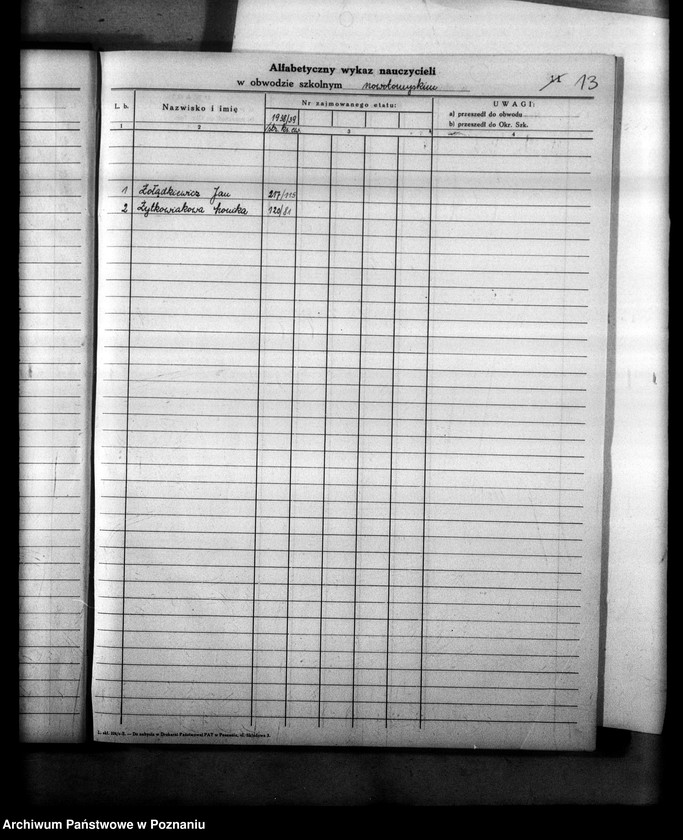 Alfabetyczny wykaz nauczycieli
w obwodzie szkolnym nowotomyskim
11 13
L. b. Nazwisko i imię Nr zajmowanego etatu: UWAGI:
1938/39 a) przeszedł do obwodu
str. b) przeszedł do Okr. Szk.
1 2 3 4
1 Żołądkiewicz Jan 217/115
2 Żytkowiakowa 120/81
L. skł. — Do nabycia w Drukarni Państwowej PAT w Poznaniu, ul. Składowa 3.
Archiwum Państwowe w Poznaniu